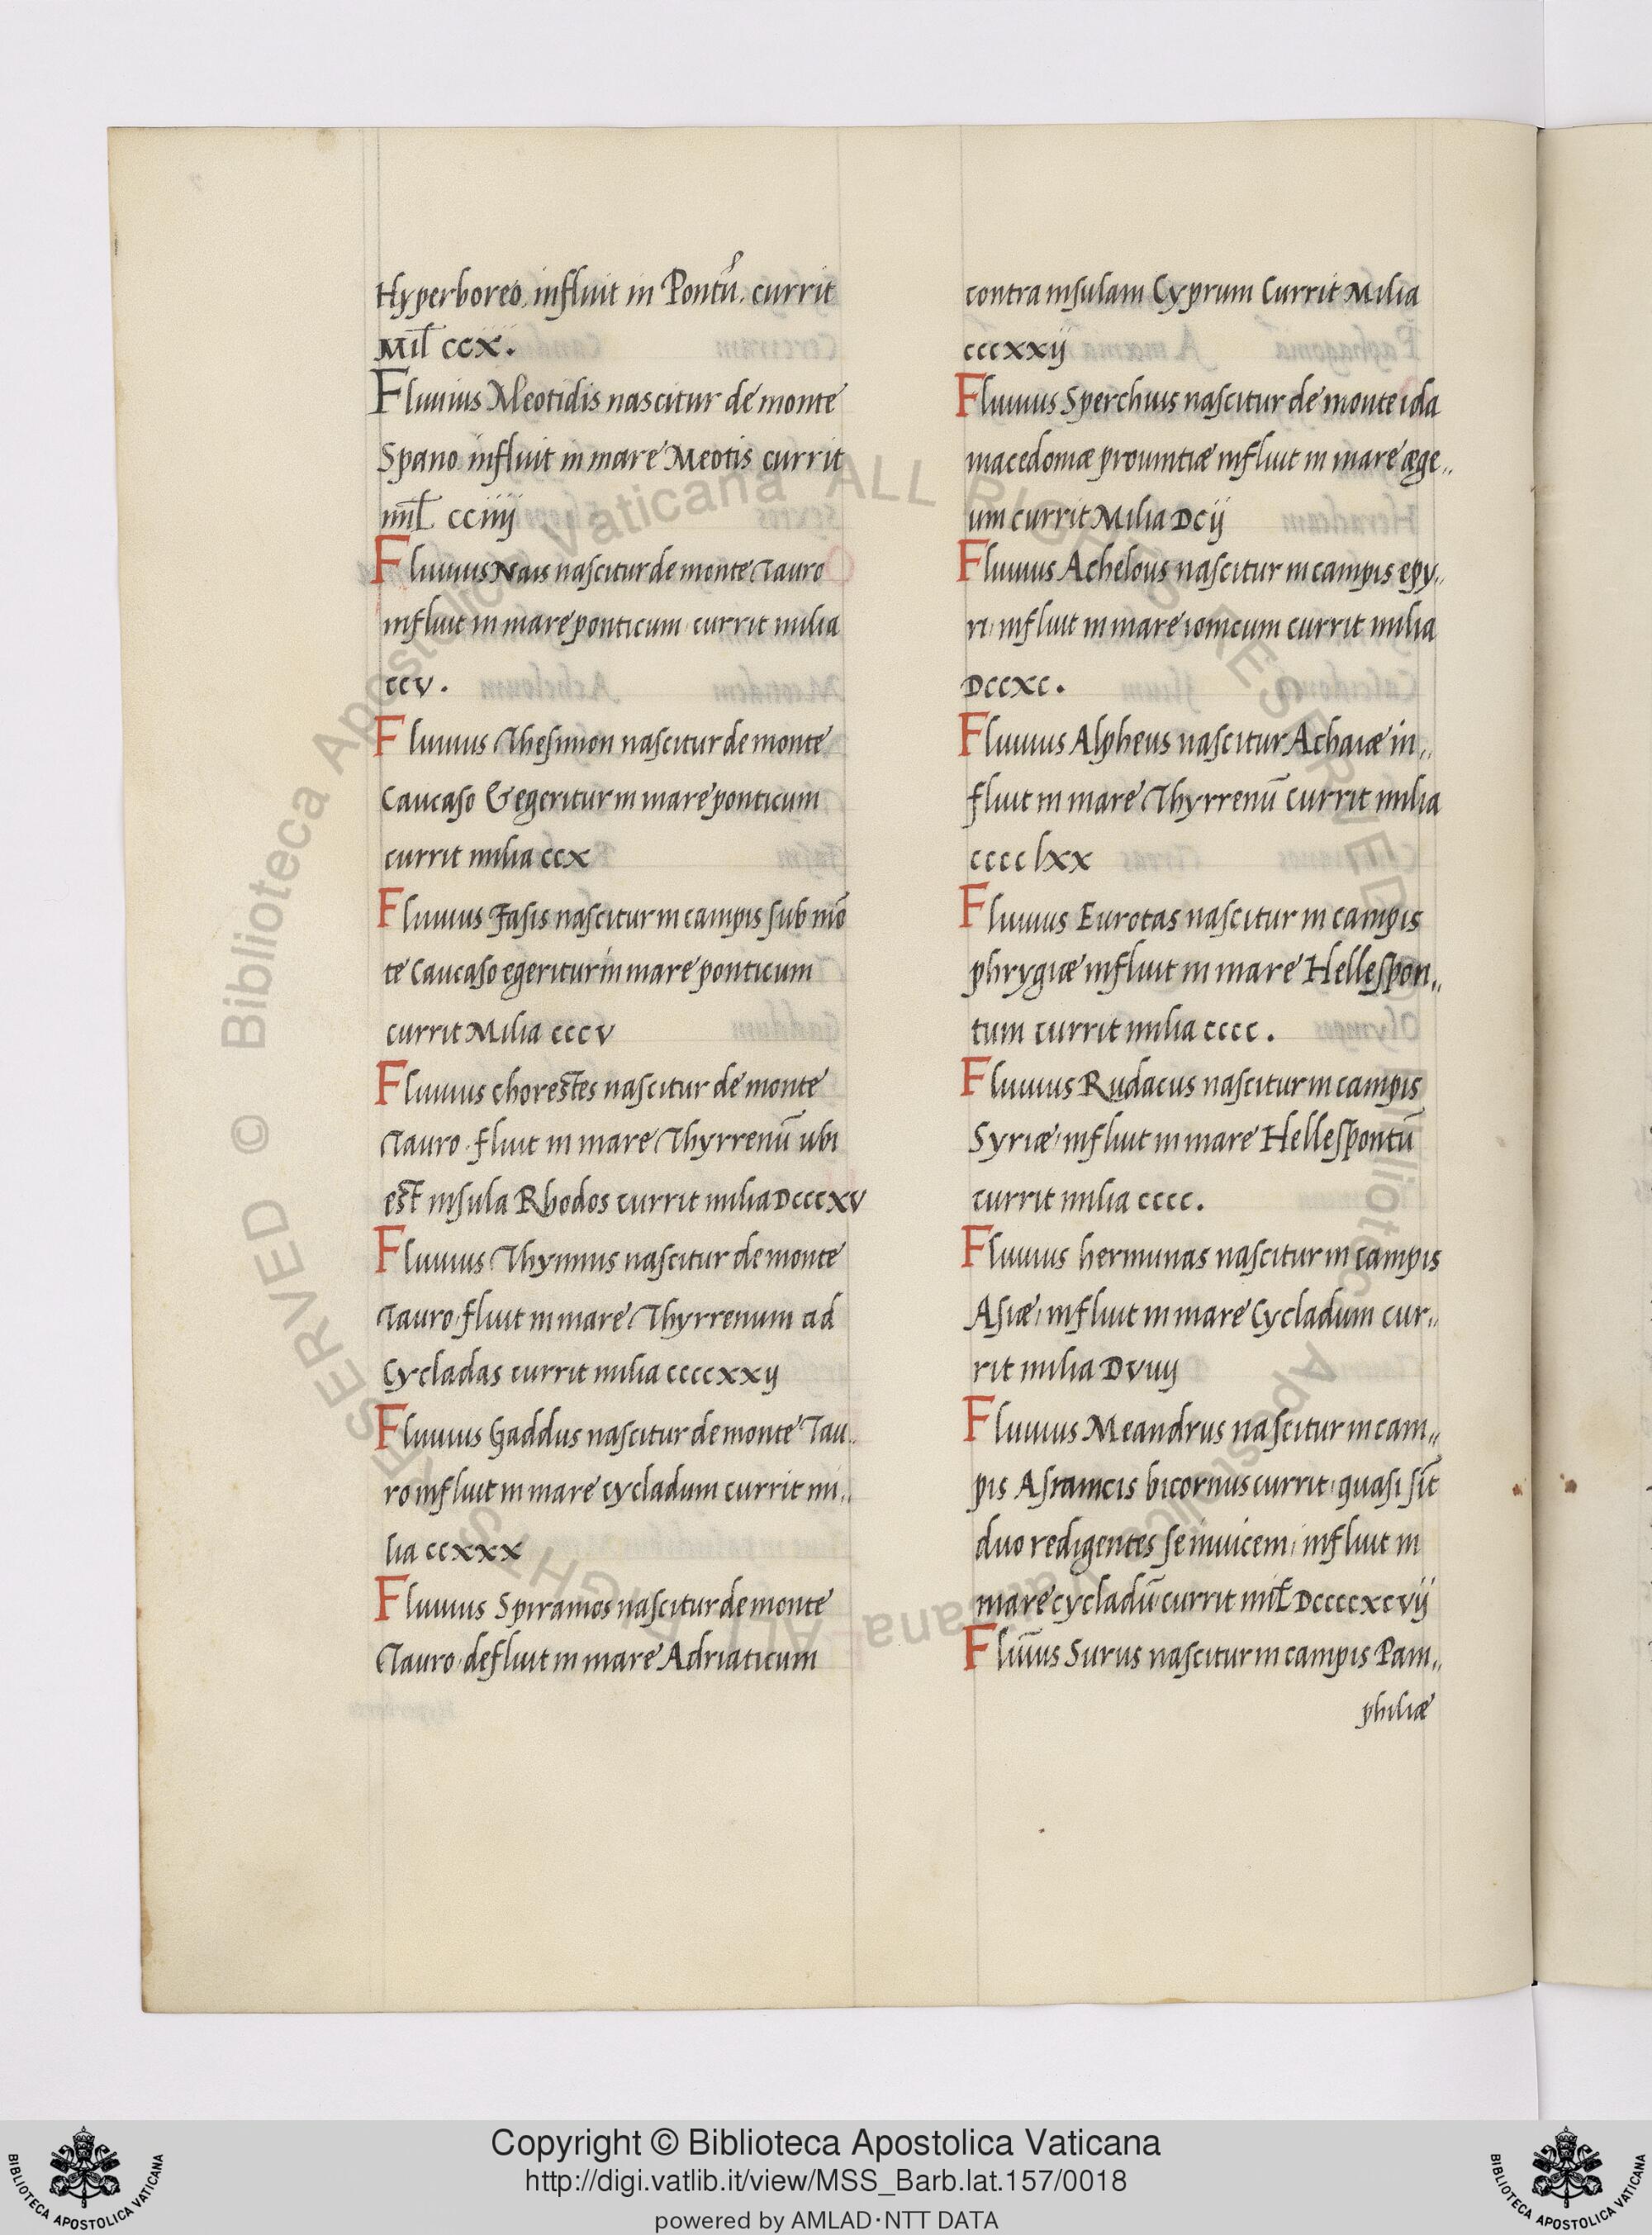 Hyperboreo, influit in Pontū. currit
Mil̄ ccx.
Fluuius Meotidis nascitur de monte
Spano influit in mare Meotis currit
mil̄. cciiij
Fluuius Nais nascitur de monte Tauro
influit in mare ponticum currit milia
ccv.
Fluuius Thesimon nascitur de monte
Caucaso & egeritur in mare ponticum
currit milia ccx
Fluuius Fasis nascitur in campis sub mō
te Caucaso egeritur in mare ponticum
currit Milia cccv
Fluuius chorestes nascitur de monte
Tauro. fluit in mare Thyrrenū ubi
est insula Rhodos currit milia Dcccxv
Fluuius Thymnus nascitur de monte
Tauro, fluit in mare Thyrrenum ad
Cycladas currit milia ccccxxij
Fluuius Gaddus nascitur de monte Tau„
ro influit in mare cycladum currit mi„
lia ccxxx
Fluuius Spiramos nascitur de monte
Tauro, defluit in mare Adriaticum
contra insulam Cyprum Currit Milia
cccxxij
Fluuius Sperchius nascitur de monte ida
macedoniæ prouintiæ influit in mare æge„
um currit Milia Dcij
Fluuius Achelous nascitur in campis epy„
ri, influit in mare ionicum currit milia
Dccxc.
Fluuius Alpheus nascitur Achaiæ in„
fluit in mare Thyrrenū currit milia
cccclxx
Fluuius Eurotas nascitur in campis
phrygiæ influit in mare Hellespon„
tum currit milia cccc.
Fluuius Rudacus nascitur in campis
Syriæ, influit in mare Hellespontū
currit milia cccc.
Fluuius hermunas nascitur in campis
Asiæ, influit in mare Cycladum cur„
rit milia Dviiij
Fluuius Meandrus nascitur in cam„
pis Asramcis bicornus currit, quasi sit
duo redigentes se inuicem, influit in
mare cycladū currit mil̄ Dccccxcvij
Fluuius Surus nascitur in campis Pam„
philiæ
Copyright © Biblioteca Apostolica Vaticana
http://digi.vatlib.it/view/MSS_Barb.lat.157/0018
powered by AMLAD·NTT DATA